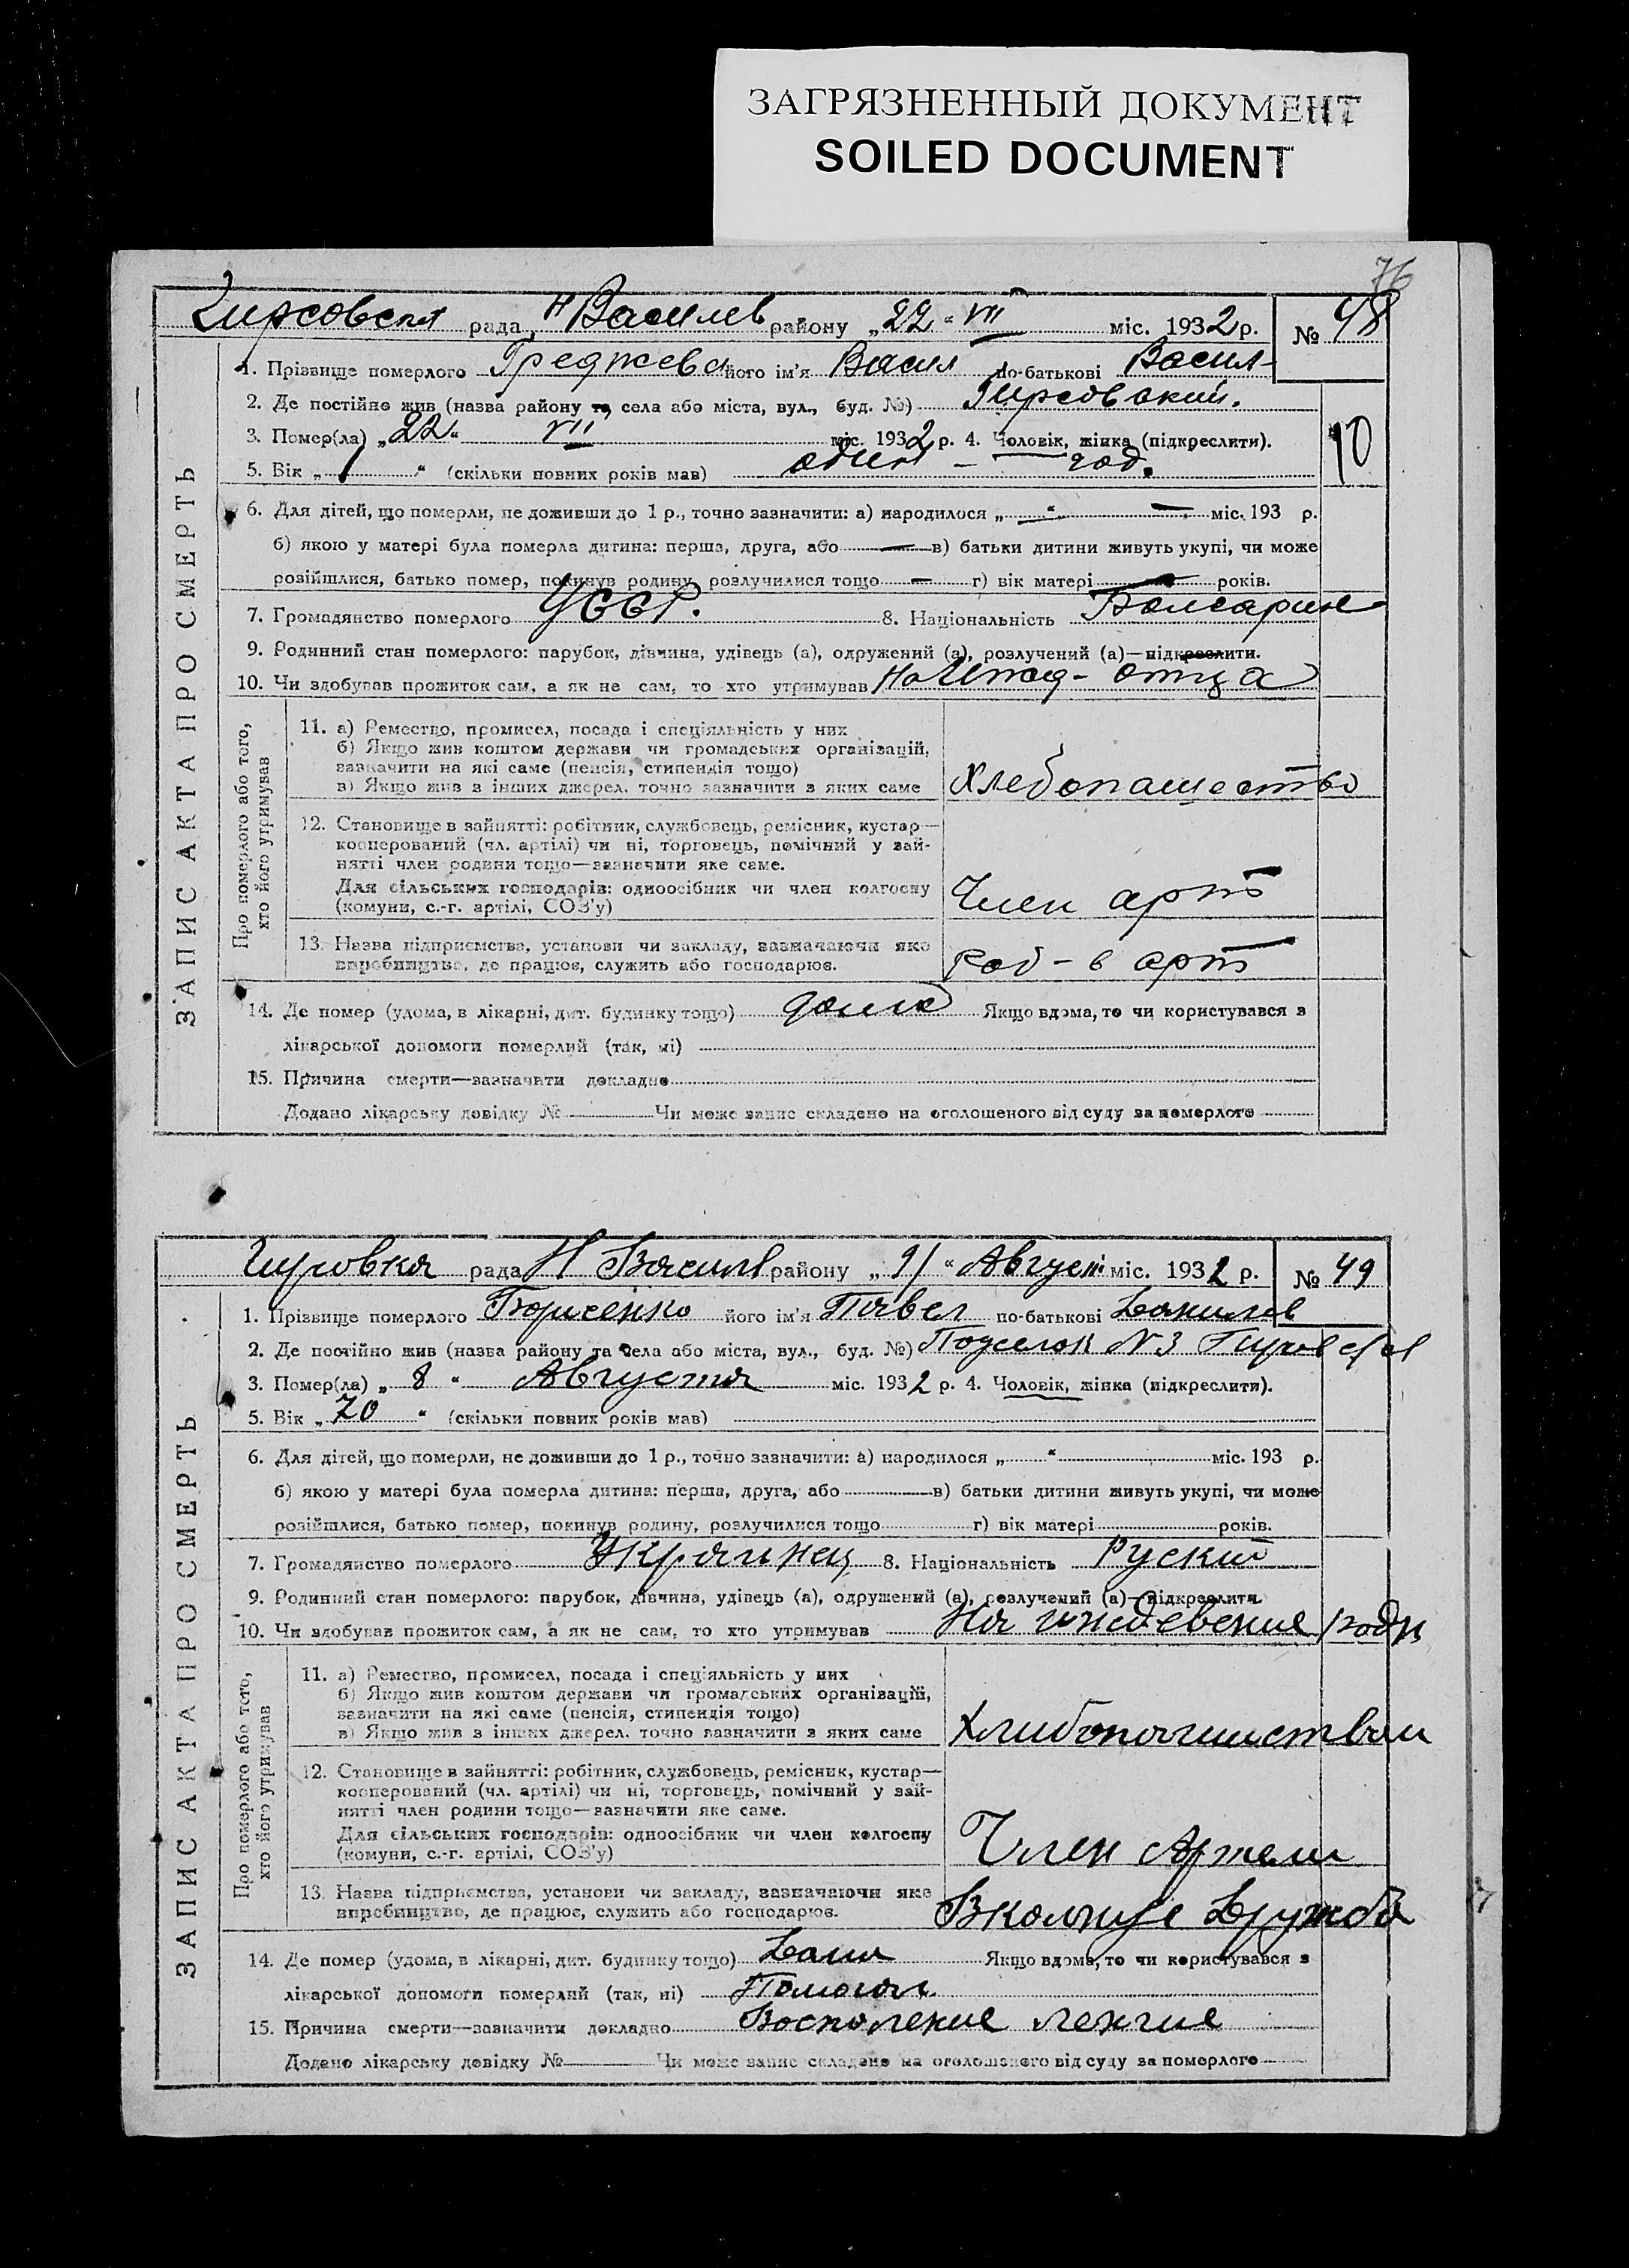 ЗАГРЯЗНЕННЫЙ ДОКУМЕНТ
SOILED DOCUMENT
76
Гирсовская рада Н Василев району „22“ VII міс. 1932 р. № 48
ЗАПИС АКТА ПРО СМЕРТЬ
1. Прізвище померлого його ім'я Васил по-батькові Васил-
2. Де постійно жив (назва району та села або міста, вул., буд. №) Гирсовский.
3. Помер(ла) „22“ VII міс. 1932 р. 4. Чоловік, жінка (підкреслити).
10
5. Вік „1“ (скільки повних років мав) один – год.
6. Для дітей, що померли, не доживши до 1 р., точно зазначити: а) народилося „—“ — міс. 193 р.
б) якою у матері була померла дитина: перша, друга, або — в) батьки дитини живуть укупі, чи може
розійшлися, батько помер, покинув родину, розлучилися тощо — г) вік матері — років.
7. Громадянство померлого УССР. 8. Національність Болгарин
9. Родинний стан померлого: парубок, дівчина, удівець (а), одружений (а), розлучений (а)—підкреслити.
10. Чи здобував прожиток сам, а як не сам, то хто утримував На Ижд- отца
Про померлого або того, хто його утримував
11. а) Ремество, промисел, посада і спеціяльність у них
б) Якщо жив коштом держави чи громадських організацій,
зазначити на які саме (пенсія, стипендія тощо)
в) Якщо жив з інших джерел, точно зазначити з яких саме Хлебопашество
12. Становище в зайнятті: робітник, службовець, ремісник, кустар—
кооперований (чл. артілі) чи ні, торговець, помічний у зай-
нятті член родини тощо—зазначити яке саме.
Для сільських господарів: одноосібник чи член колгоспу
(комуни, с.-г. артілі, СОЗ'у) Член арт
13. Назва підприємства, установи чи закладу, зазначаючи яке
виробництво, де працює, служить або господарює. Раб- в арт
14. Де помер (удома, в лікарні, дит. будинку тощо) дома Якщо вдома, то чи користувався з
лікарської допомоги померлий (так, ні)
15. Причина смерти—зазначити докладно
Додано лікарську довідку № Чи може запис складено на оголошеного від суду за померлого
Гировка рада Н Васил району „11“ Август міс. 1932 р. № 49
ЗАПИС АКТА ПРО СМЕРТЬ
1. Прізвище померлого Борисенко його ім'я Павел по-батькові Данилов
2. Де постійно жив (назва району та села або міста, вул., буд. №) Поселок N 3
3. Помер(ла) „8“ Августа міс. 1932 р. 4. Чоловік, жінка (підкреслити).
5. Вік „70“ (скільки повних років мав)
6. Для дітей, що померли, не доживши до 1 р., точно зазначити: а) народилося „ “ міс. 193 р.
б) якою у матері була померла дитина: перша, друга, або в) батьки дитини живуть укупі, чи може
розійшлися, батько помер, покинув родину, розлучилися тощо г) вік матері років.
7. Громадянство померлого Украинец 8. Національність Руский
9. Родинний стан померлого: парубок, дівчина, удівець (а), одружений (а), розлучений (а)—підкреслити.
10. Чи здобував прожиток сам, а як не сам, то хто утримував На иждевение
Про померлого або того, хто його утримував
11. а) Ремество, промисел, посада і спеціяльність у них
б) Якщо жив коштом держави чи громадських організацій,
зазначити на які саме (пенсія, стипендія тощо)
в) Якщо жив з інших джерел, точно зазначити з яких саме Хлибопашиством
12. Становище в зайнятті: робітник, службовець, ремісник, кустар—
кооперований (чл. артілі) чи ні, торговець, помічний у зай-
нятті член родини тощо—зазначити яке саме.
Для сільських господарів: одноосібник чи член колгоспу
(комуни, с.-г. артілі, СОЗ'у) Член Артели
13. Назва підприємства, установи чи закладу, зазначаючи яке
виробництво, де працює, служить або господарює. Дружба
14. Де помер (удома, в лікарні, дит. будинку тощо) Дома Якщо вдома, то чи користувався з
лікарської допомоги померлий (так, ні)
15. Причина смерти—зазначити докладно Восполение легкие
Додано лікарську довідку № Чи може запис складено на оголошеного від суду за померлого